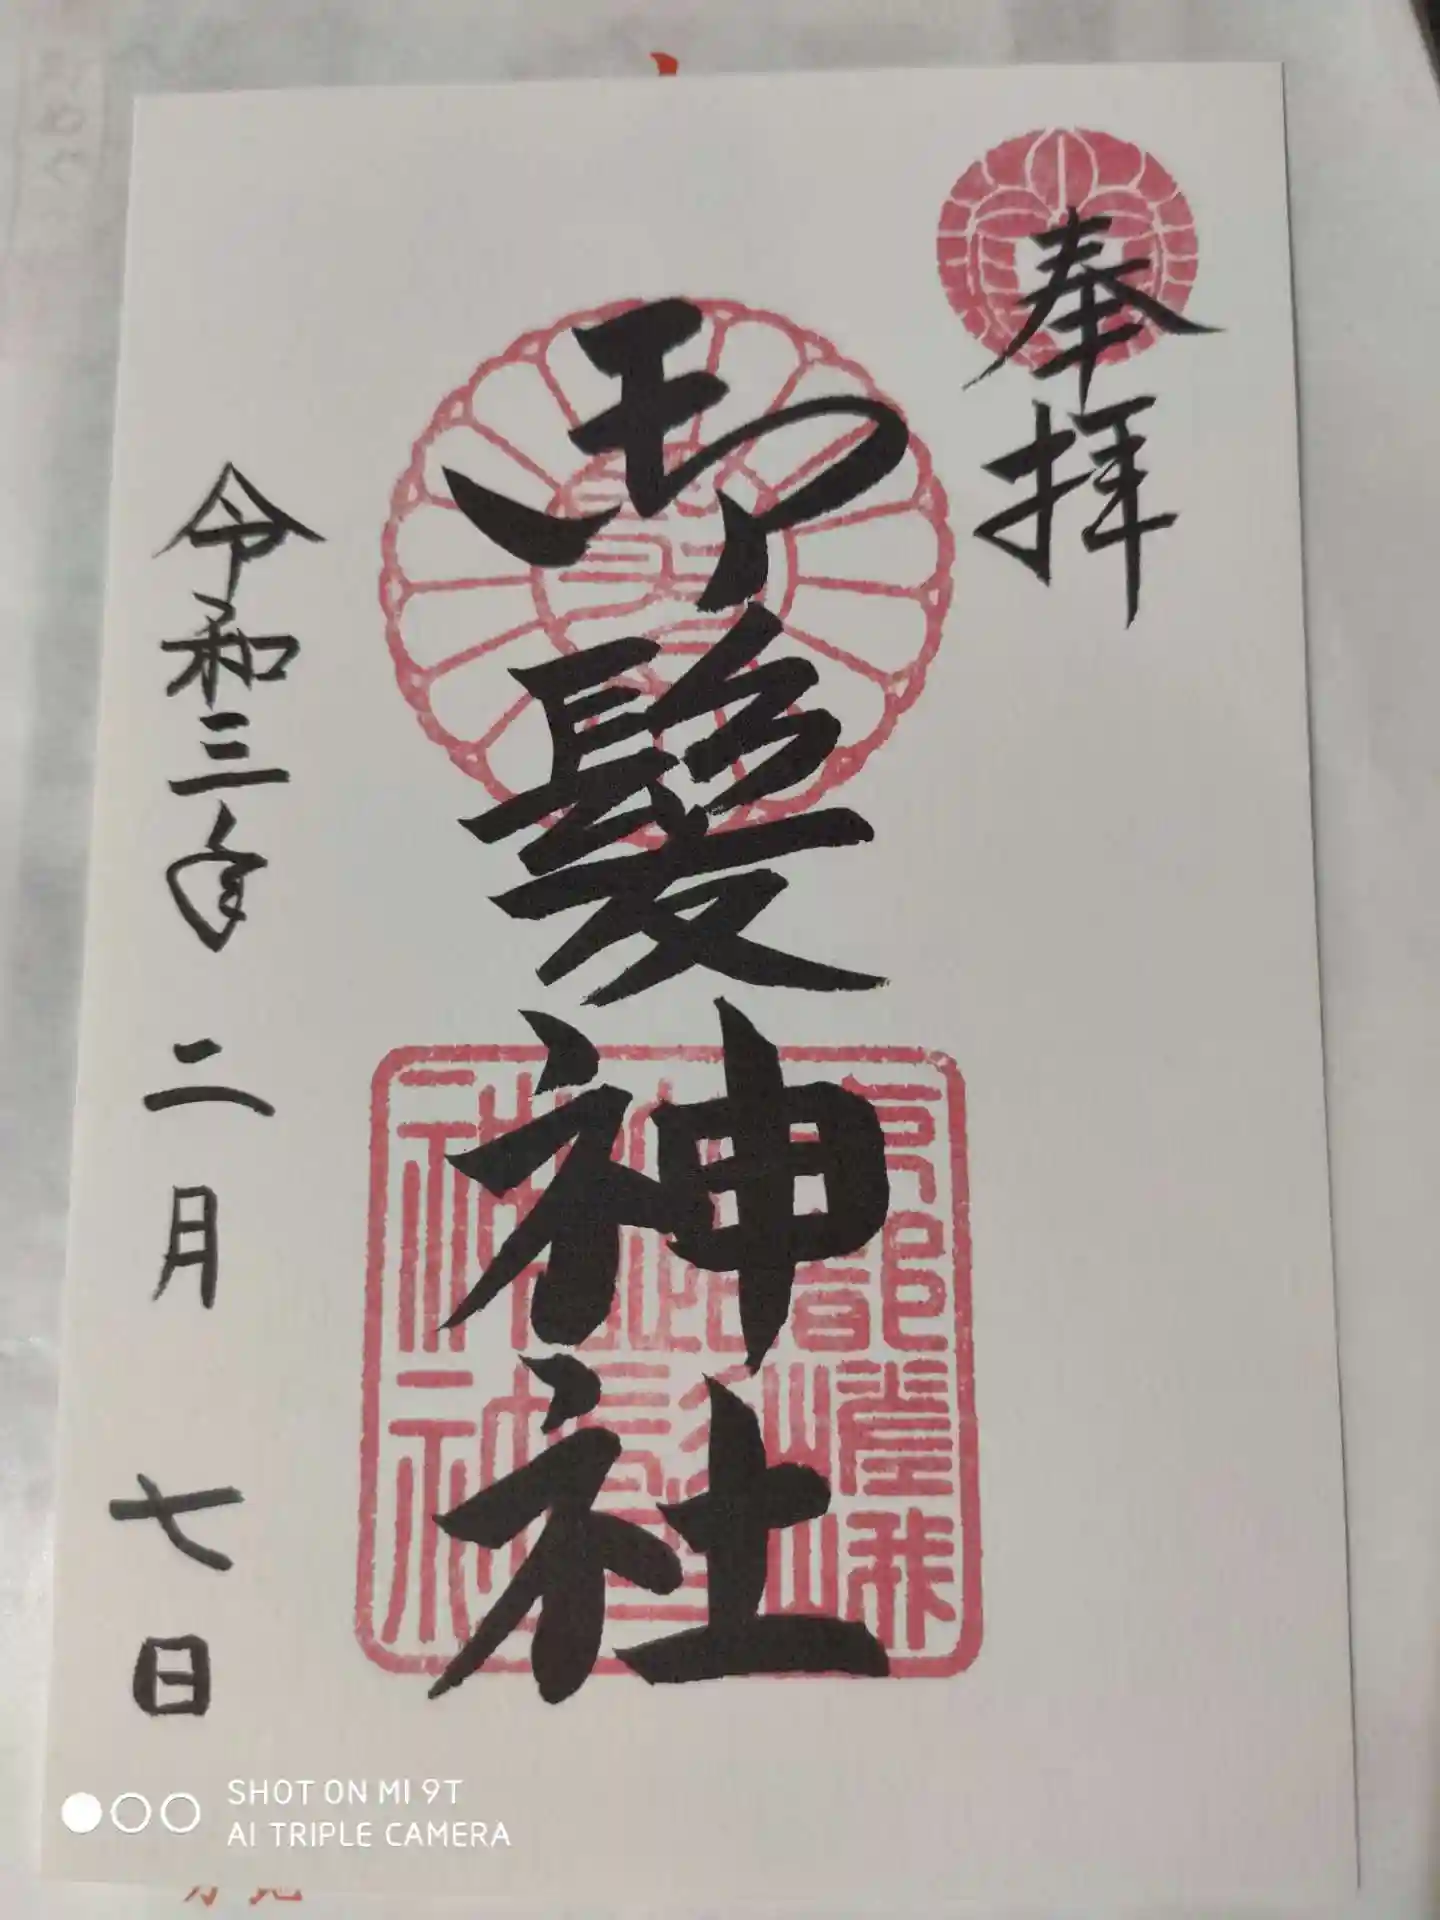 奉拝
御髪神社
令和三年 二月 七日
SHOT ON MI 9T
AI TRIPLE CAMERA